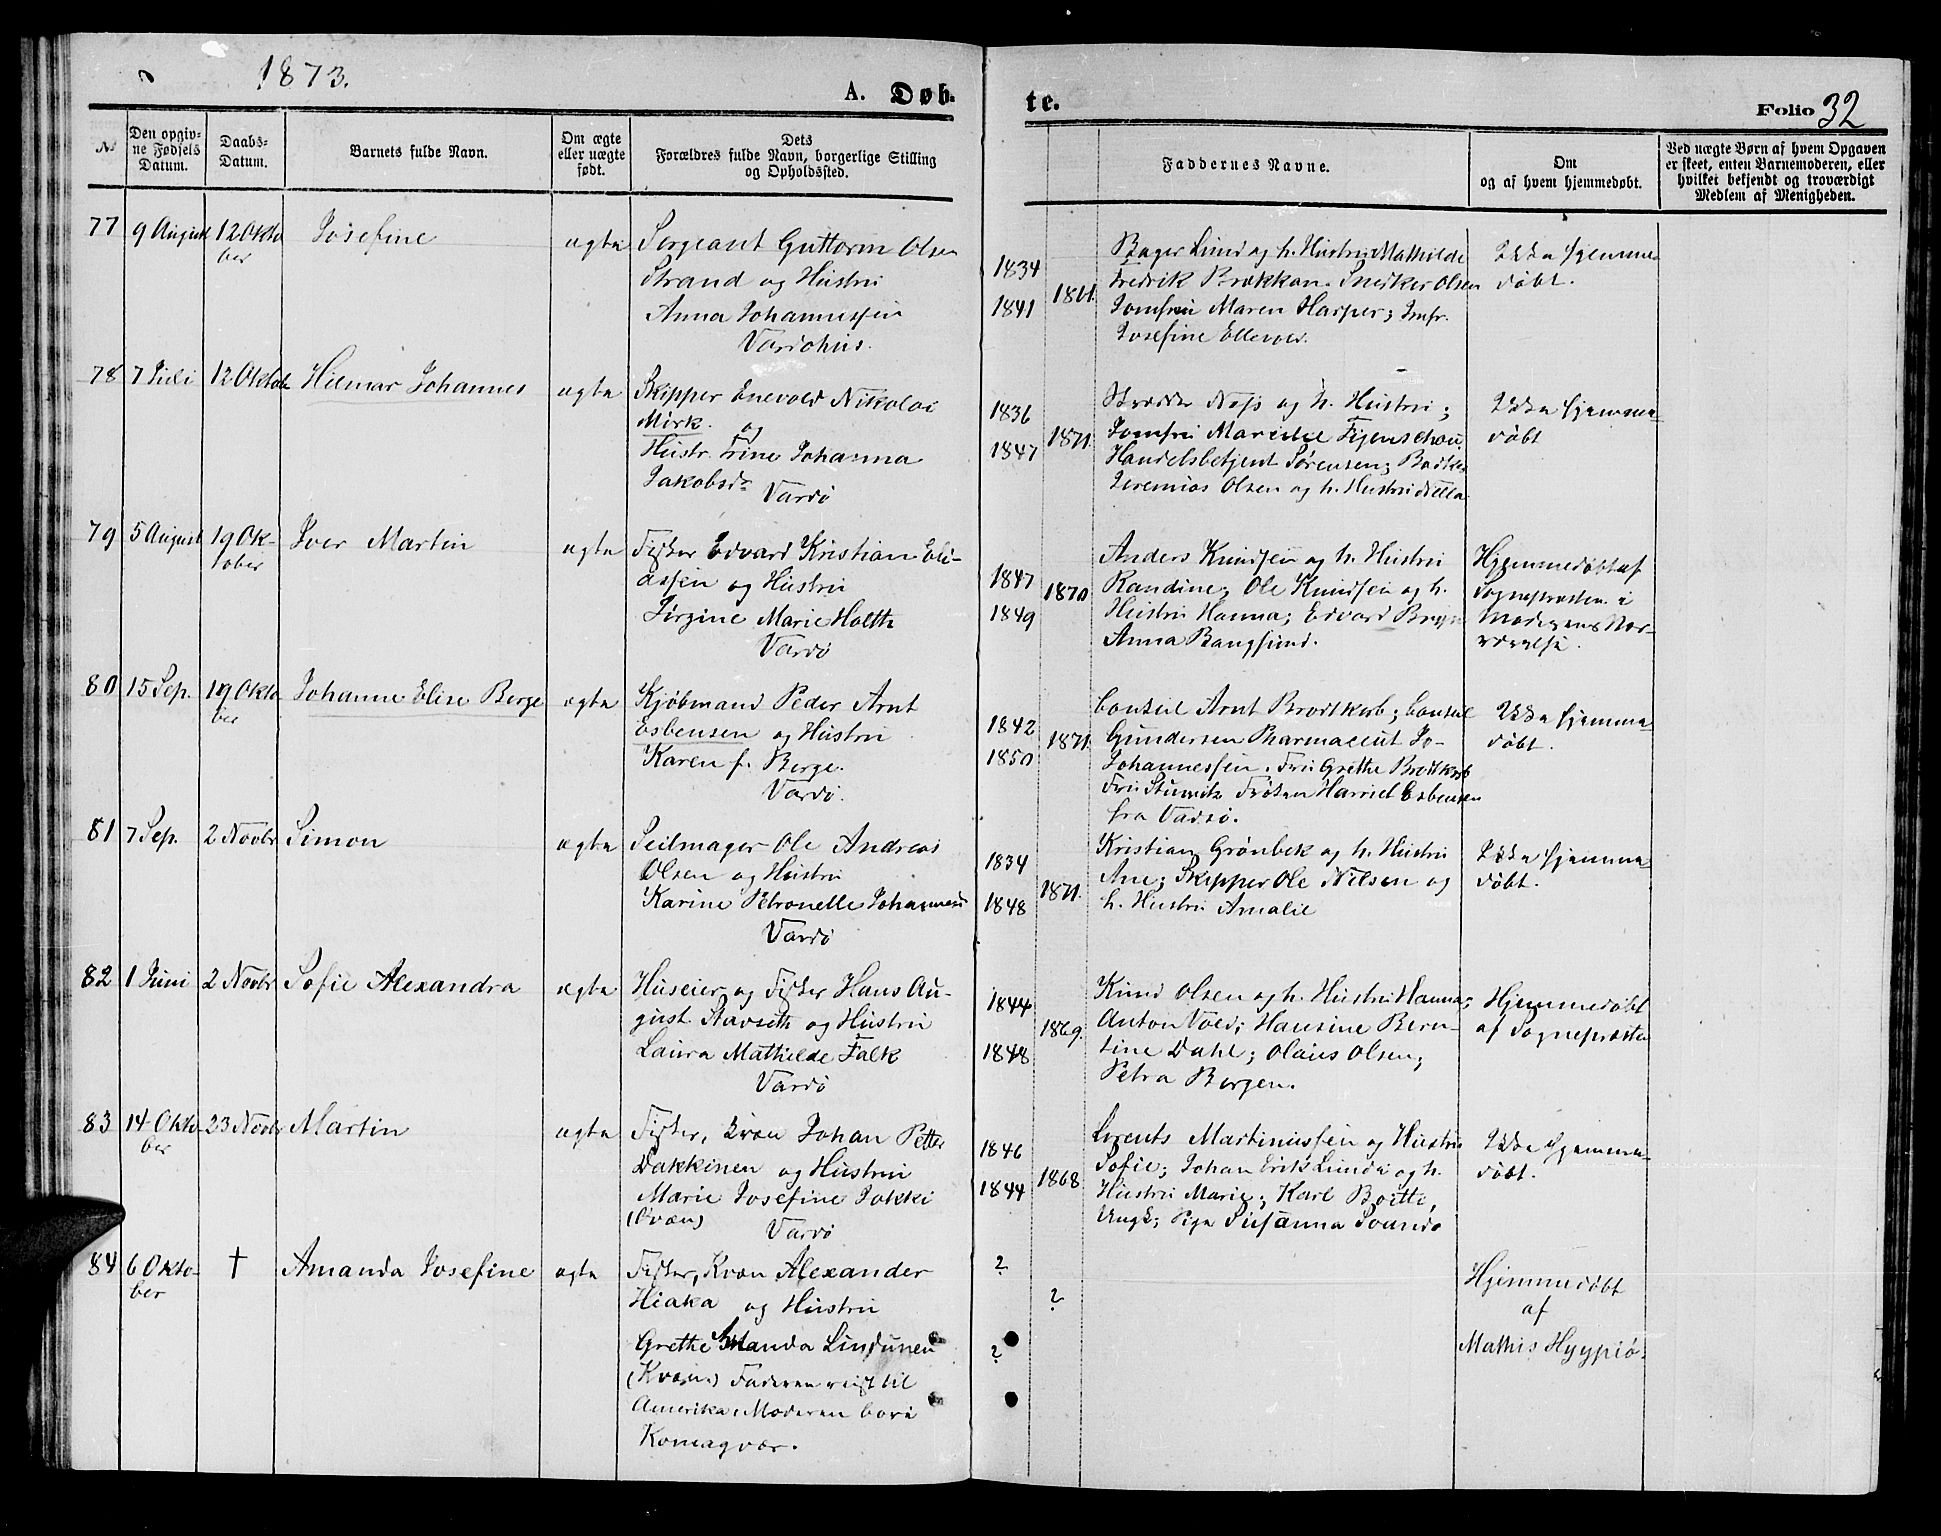 1873.
A. Døb-
te.
Folio 32
№
Den opgiv-
ne Fødsels
Datum.
Daabs-
Datum.
Barnets fulde Navn.
Om ægte
eller uægte
født.
Dets
Forældres fulde Navn, borgerlige Stilling
og Opholdssted.
Faddernes Navne.
Om
og af hvem hjemmedøbt.
Ved uægte Børn af hvem Opgaven
er skeet, enten Barnemoderen, eller
hvilket bekjendt og troværdigt
Medlem af Menigheden.
77
9 August
12 Okto
ber
Josefine
ægte
Sergeant Guttorm Olsen
Strand og Hustru
Anna Johannessen
Vardøhus.
1834
1841
Bager Lund og h. Hustru Mathilde
Fredrik Brækkan. Snedker Olsen
Jomfru Maren Harper; Jmfr.
Josefine Ellevold.
Ikke hjemme
døbt.
78
7 Juli
12 Oktob
Hilmar Johannes
ægte
Skipper Enevold Nikolai
Mørk og
Hustr. Trine Johanna
Jakobsdr
Vardø
1836
1847
1871.
og h. Hustru;
Jomfru Figenschou
Handelsbetjent Sørensen; Bødker
Jeremias Olsen og h. Hustru
Ikke hjemme-
døbt
79
5 August
19 Ok-
tober
Iver Martin
ægte
Fisker Edvard Kristian Eli-
assen og Hustru
Jørgine Marie Holth
Vardø
1847
1849
1870
Anders Knudsen og h. Hustru
Randine; Ole Knudsen og h.
Hustru Hanna; Edvard
Anna Bangsund.
Hjemmedøbt af
Sognepræsten i
Moderens Nær-
værelse.
80
15 Sep.
19 Okto
ber
Johanne Elise Berge
ægte
Kjøbmand Peder Arnt
Esbensen og Hustru
Karen f. Berge.
Vardø.
1842
1850
1871.
Consul Arnt Brodtkorb; Consul
Gundersen Pharmaceut Jo-
Johannessen. Fru Grethe Brodtkorb
Fru Frøken Harriet Esbensen
fra Vadsø.
Ikke hjemme-
døbt.
81
7 Sep.
2 Novbr
Simon
ægte
Seilmager Ole Andreas
Olsen og Hustru
Karine Petronelle Johannesd
Vardø
1834
1848
1871.
Kristian Grønbek og h. Hustru
Ane; Skipper Ole Nilsen og
h. Hustru Amalie
Ikke hjemme
døbt.
82
1 Juni
2 Novbr
Sofie Alexandra
ægte
Huseier og Fisker Hans Au-
gust Stavseth og Hustru
Laura Mathilde Falk
Vardø
1844
1848
1869.
Knud Olsen og h. Hustru Hanna;
Anton Vold; Hansine Bern-
tine Dahl; Olaus Olsen;
Petra Borgen.
Hjemmedøbt
af Sognepræsten
83
14 Okto-
ber
23 Novbr
Martin
ægte
Fisker, Kvæn Johan Petter
Dakkinen og Hustru
Marie Josefine Jokki
(Kvæn)
Vardø
1846
1844
1868
Lorents Martinussen og Hustru
Sofie; Johan Erik Lunde og h.
Hustru Marie; Karl
Ungk; Pige Susanna
Ikke hjemme-
døbt.
84
6 Okto-
ber
†
Amanda Josefine
ægte
Fisker, Kvæn Alexander
Hiaka og Hustru
Grethe
(Kvæn.) Faderen reist til
Amerika. Moderen bor i
Komagvær.
?
?
?
Hjemmedøbt
af
Mathis Hyypiö.